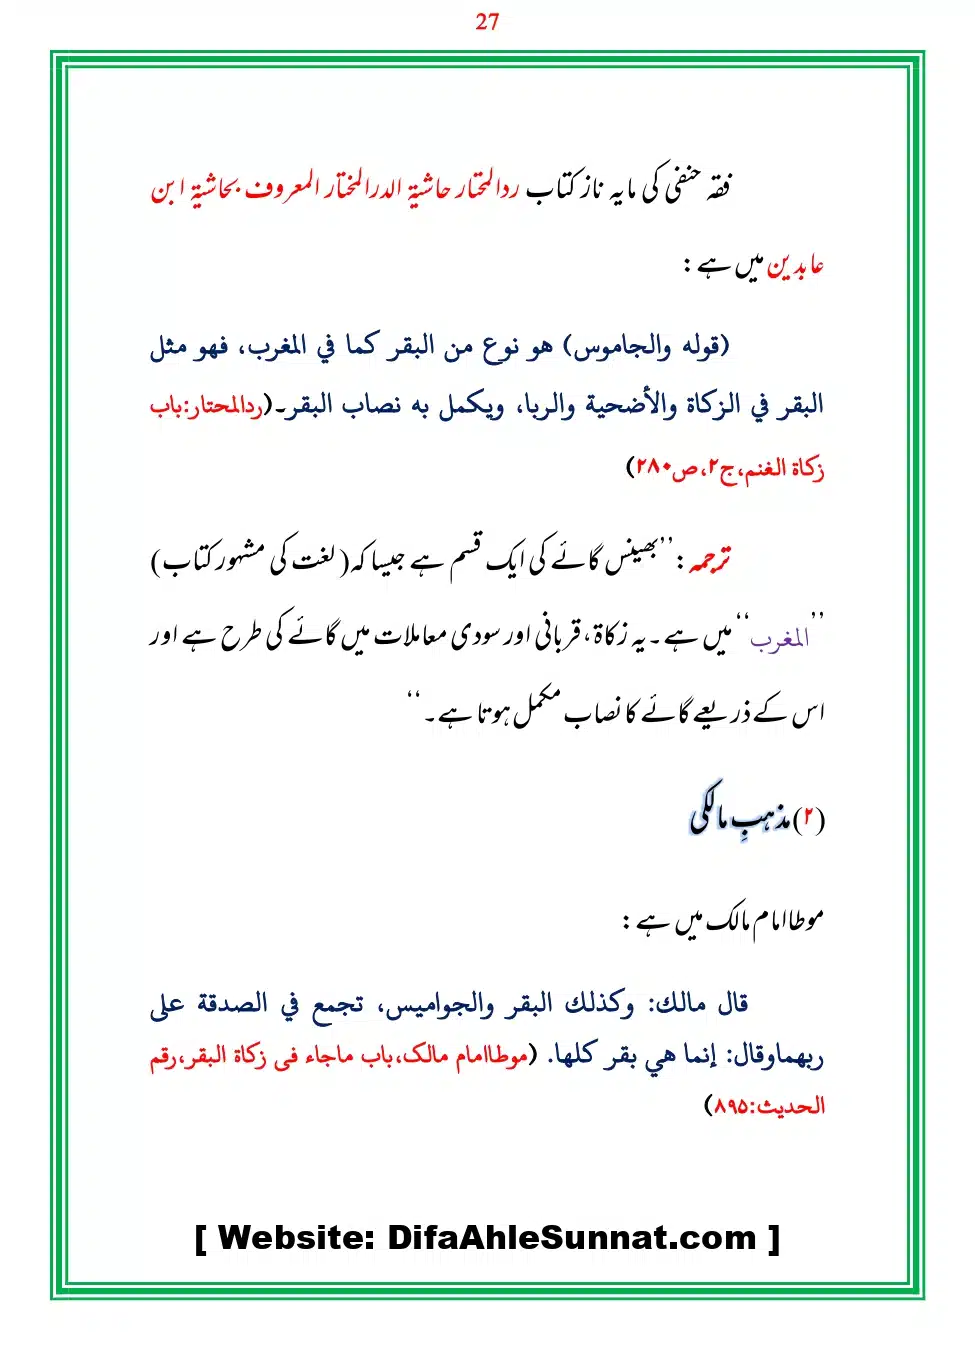 27
فقہ حنفی کی مایہ ناز کتاب ردالمحتار حاشیۃ الدرالمختار المعروف بحاشیۃ ابن
عابدین میں ہے:
(قوله والجاموس) هو نوع من البقر كما في المغرب، فهو مثل
البقر في الزكاة والأضحية والربا، ويكمل به نصاب البقر۔(ردالمحتار:باب
زکاة الغنم،ج۲،ص۲۸۰)
ترجمہ:’’بھینس گائے کی ایک قسم ہے جیسا کہ(لغت کی مشہور کتاب)
’’المغرب‘‘میں ہے۔یہ زکاۃ،قربانی اور سودی معاملات میں گائے کی طرح ہے اور
اس کے ذریعے گائے کا نصاب مکمل ہوتا ہے۔‘‘
(۲)مذہبِ مالکی
موطاامام مالک میں ہے:
قال مالك: وكذلك البقر والجواميس، تجمع في الصدقة على
ربهماوقال: إنما هي بقر كلها. (موطاامام مالک،باب ماجاء فی زکاة البقر،رقم
الحدیث:۸۹۵)
[ Website: DifaAhleSunnat.com ]